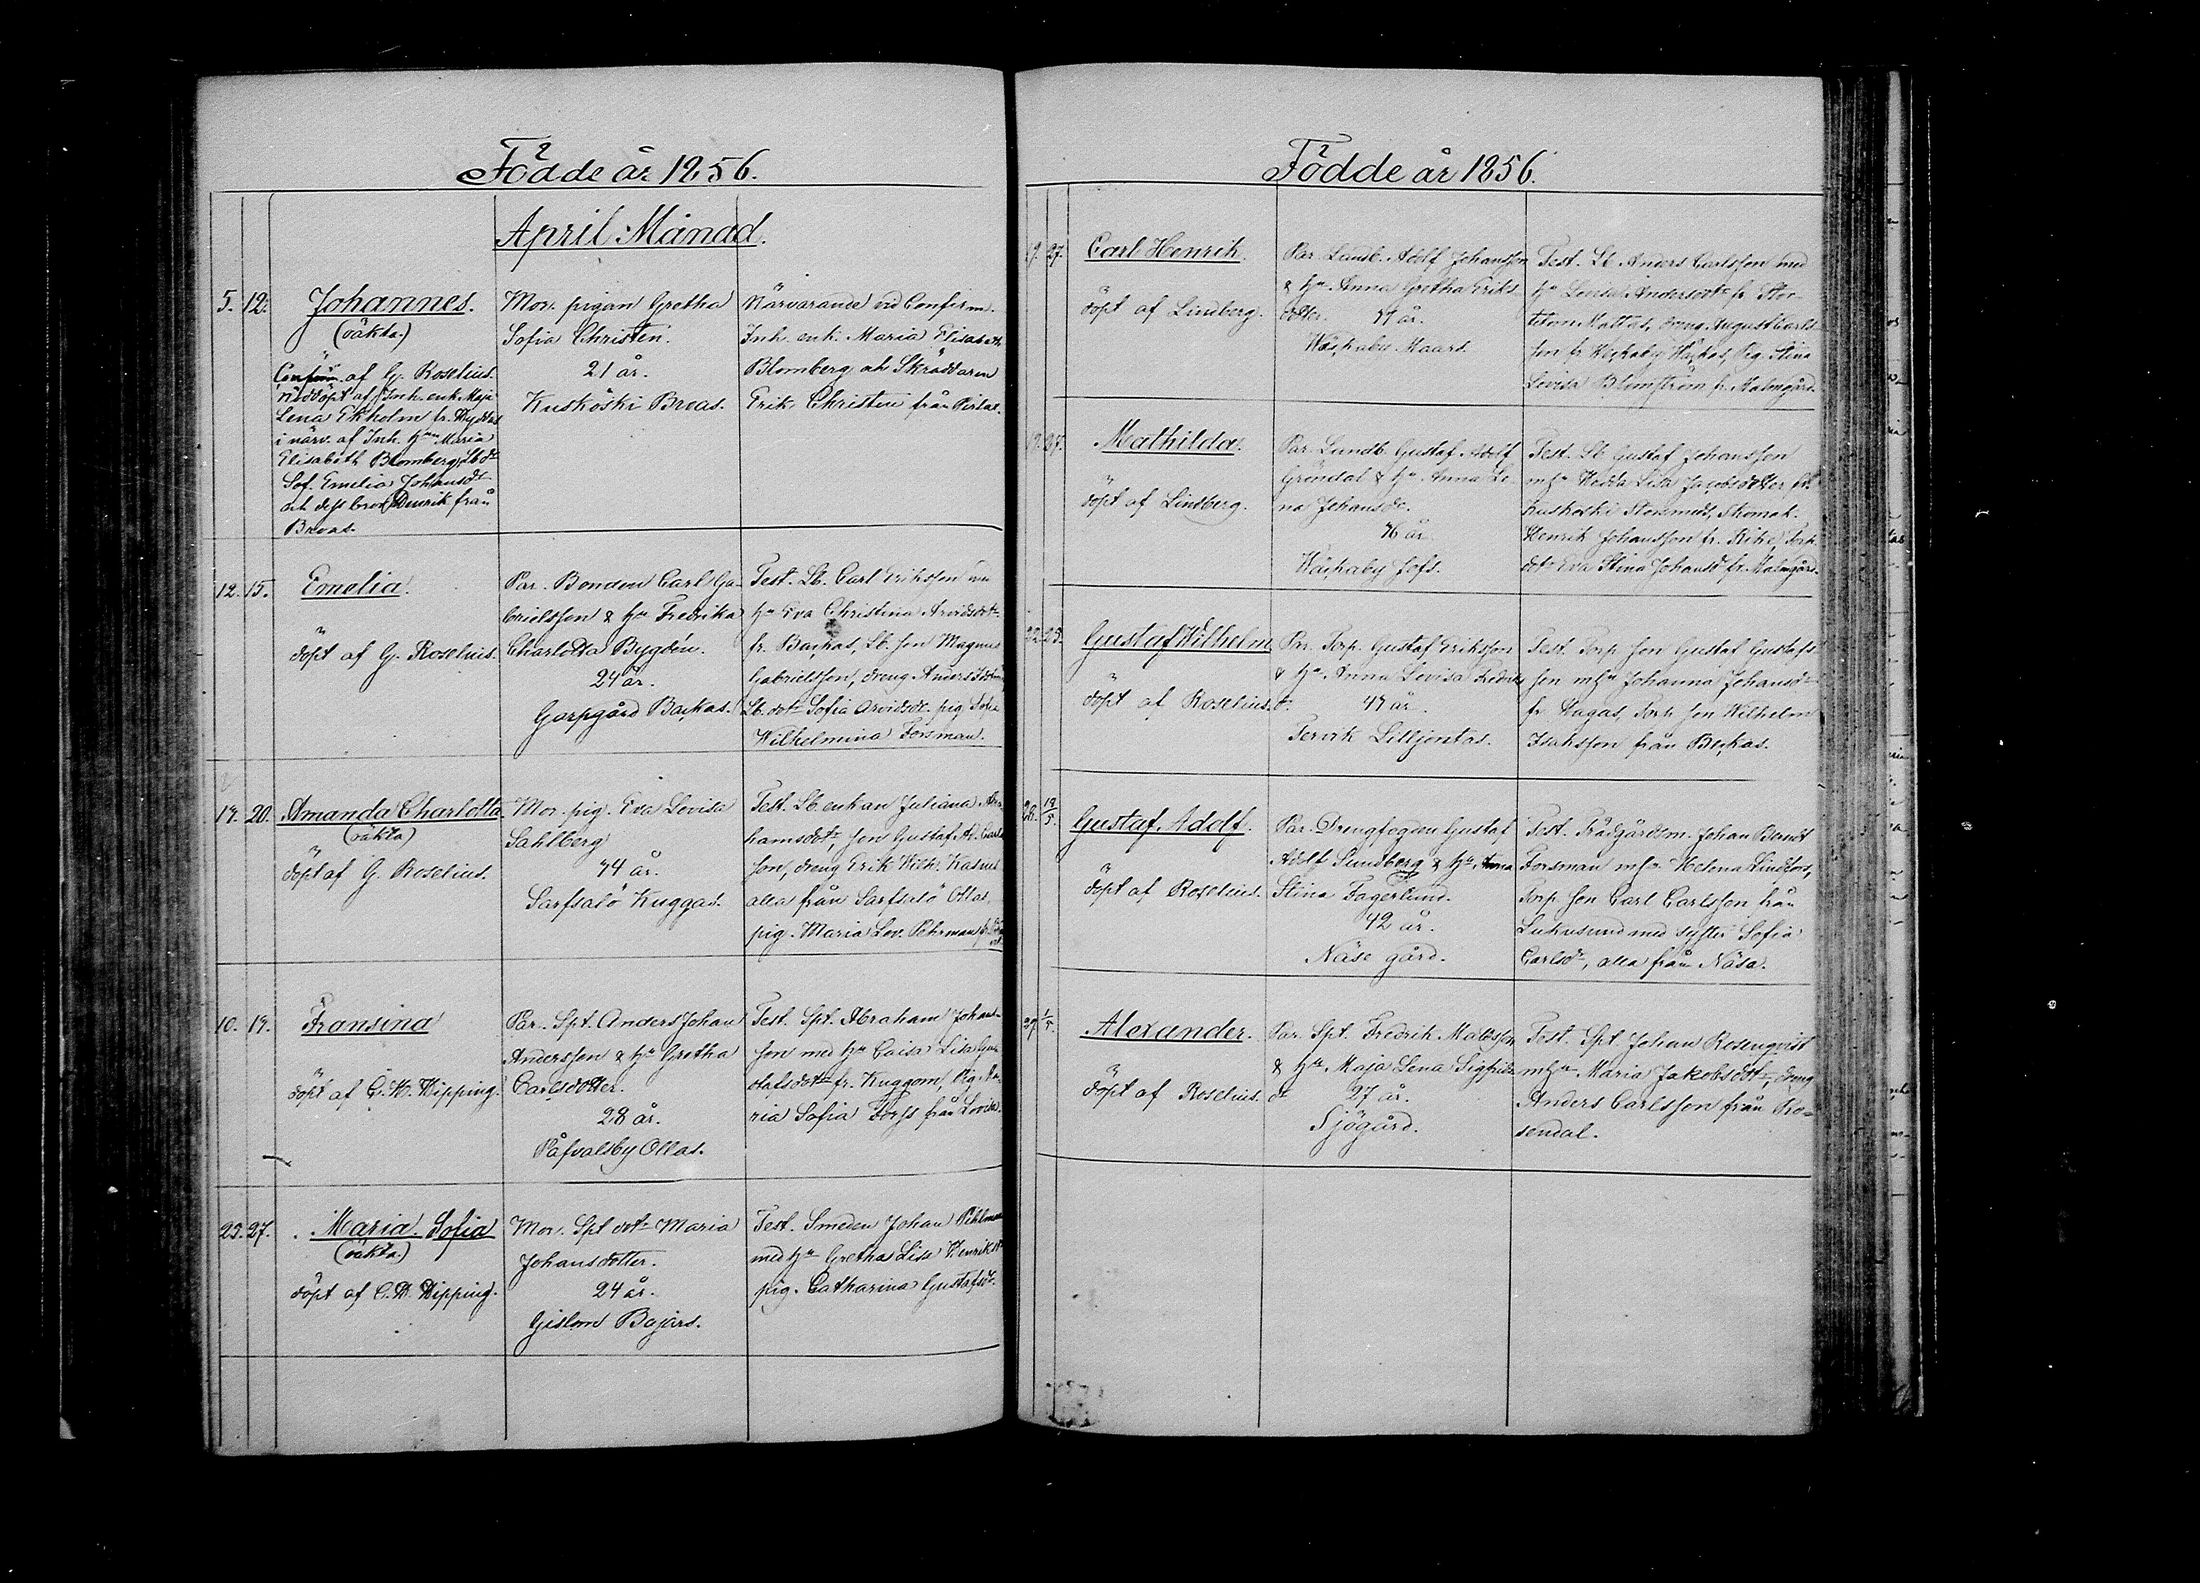 Födde år 1856.
April Månad.
5. 12. Johannes.
(oäkta.)
Confirm. af G. Roselius.
nöddöpt af Inh. enk. Maja
Lena Ekholm fr.
i närv. af Inh. Maria
Elisabeth Blomberg, Lb dr
Sof. Emelia Johansdr
och dess bror Henrik från
Broas.
Mor. pigan Gretha
Sofia Christen.
21 år.
Kuskoski Broas.
Närvarande vid Confirm.
Inh. enk. Maria Elisabeth
Blomberg och Skräddaren
Erik Christen från
12. 15. Emelia.
döpt af G. Roselius.
Par. Bonden Carl Ga-
brielsson & hu Fredrika
Charlotta Bygdén.
24 år.
Garpgård Backas.
Test. Lb. Carl Eriksson
hu Eva Christina Arvidsdr
fr. Backas, Lb. son Magnus
Gabrielsson, dreng Anders
Lb. dotr Sofia Arvidsdr. pig. Sofia
Wilhelmina Forsman.
19. 20. Amanda Charlotta
(oäkta)
döpt af G. Roselius.
Mor. pig. Eva Lovisa
Sahlberg
44 år.
Sarfsalö Kuggas.
Test. Lb. enkan Juliana Abra-
hamsdotr, son Gustaf Ad. Carls
son, dreng Erik Wilh.
alla från Sarfsalö Ollas,
pig. Maria Lov. Pehrman
10. 19. Fransina
döpt af C. W. Wipping.
Par. Spt. Anders Johan
Andersson & hu Gretha
Carlsdotter.
28 år.
Påfvalsby Ollas.
Test. Spt. Abraham Johans-
son med hu Caisa Lisa Gus-
tafsdotr fr. Kuggom, Pig. Ma-
ria Sofia Forss från Lovisa.
25. 27. Maria Sofia
(oäkta.)
döpt af C. W. Wipping.
Mor. Spt dotr Maria
Johansdotter.
24 år.
Gislom Bajars.
Test. Smeden Johan Pehlman
med hu Gretha Lisa Henriksdr
pig. Catharina Gustafsdr.
Födde år 1856.
19. 27. Carl Henrik.
döpt af Lindberg.
Par. Landb. Adolf Johansson
& hu Anna Gretha Eriks-
dotter. 41 år.
Wäckaby Maars.
Test. Lb. Anders Carlsson med
hu Lovisa Andersdr fr. Stor-
Mattas, dreng. August Carls-
son fr. Wäckaby, Pig. Stina
Lovisa Blomström fr. Malmgård.
27. Mathilda.
döpt af Lindberg.
Par. Landb. Gustaf Adolf
Gröndal & hu Anna Le-
na Johansdr.
46 år
Wäckaby Jofs.
Test. Lb. Gustaf Johansson
m hu Hedda Lisa Jacobsdotter fr.
Kuskoski Storsmeds, Skomak.
Henrik Johansson fr. Rike, Torp.
dotr Eva Stina Johansdr fr. Malmgård.
22. 25. Gustaf Wilhelm
döpt af Roselius.
Par. Torp. Gustaf Eriksson
& hu Anna Lovisa Fredriks
dr. 41 år.
Tervik Lilljentas.
Test. Torp. son Gustaf Gustafs-
son m hu Johanna Johansdr
fr. Hagas, Torp. son Wilhelm
Isaksson från Beckas.
26. 18/5. Gustaf Adolf.
döpt af Roselius.
Par. Drengfogden Gustaf
Adolf Sundberg & hu Anna
Stina Fagerlund.
42 år.
Näse gård.
Test. Trädgårdsm. Johan Berndt
Forsman m hu Helena Lindfors,
Torp. son Carl Carlsson från
Lukusund med syster Sofia
Carlsdr, alla från Näse.
27. 1/5. Alexander.
döpt af Roselius.
Par. Spt. Fredrik Matsson
& hu Maja Lena Sigfrids
dr 27 år.
Sjögård.
Test. Spt Johan Rosenqvist
m hu Maria Jakobsdotr, dreng
Anders Carlsson från Ro-
sendal.